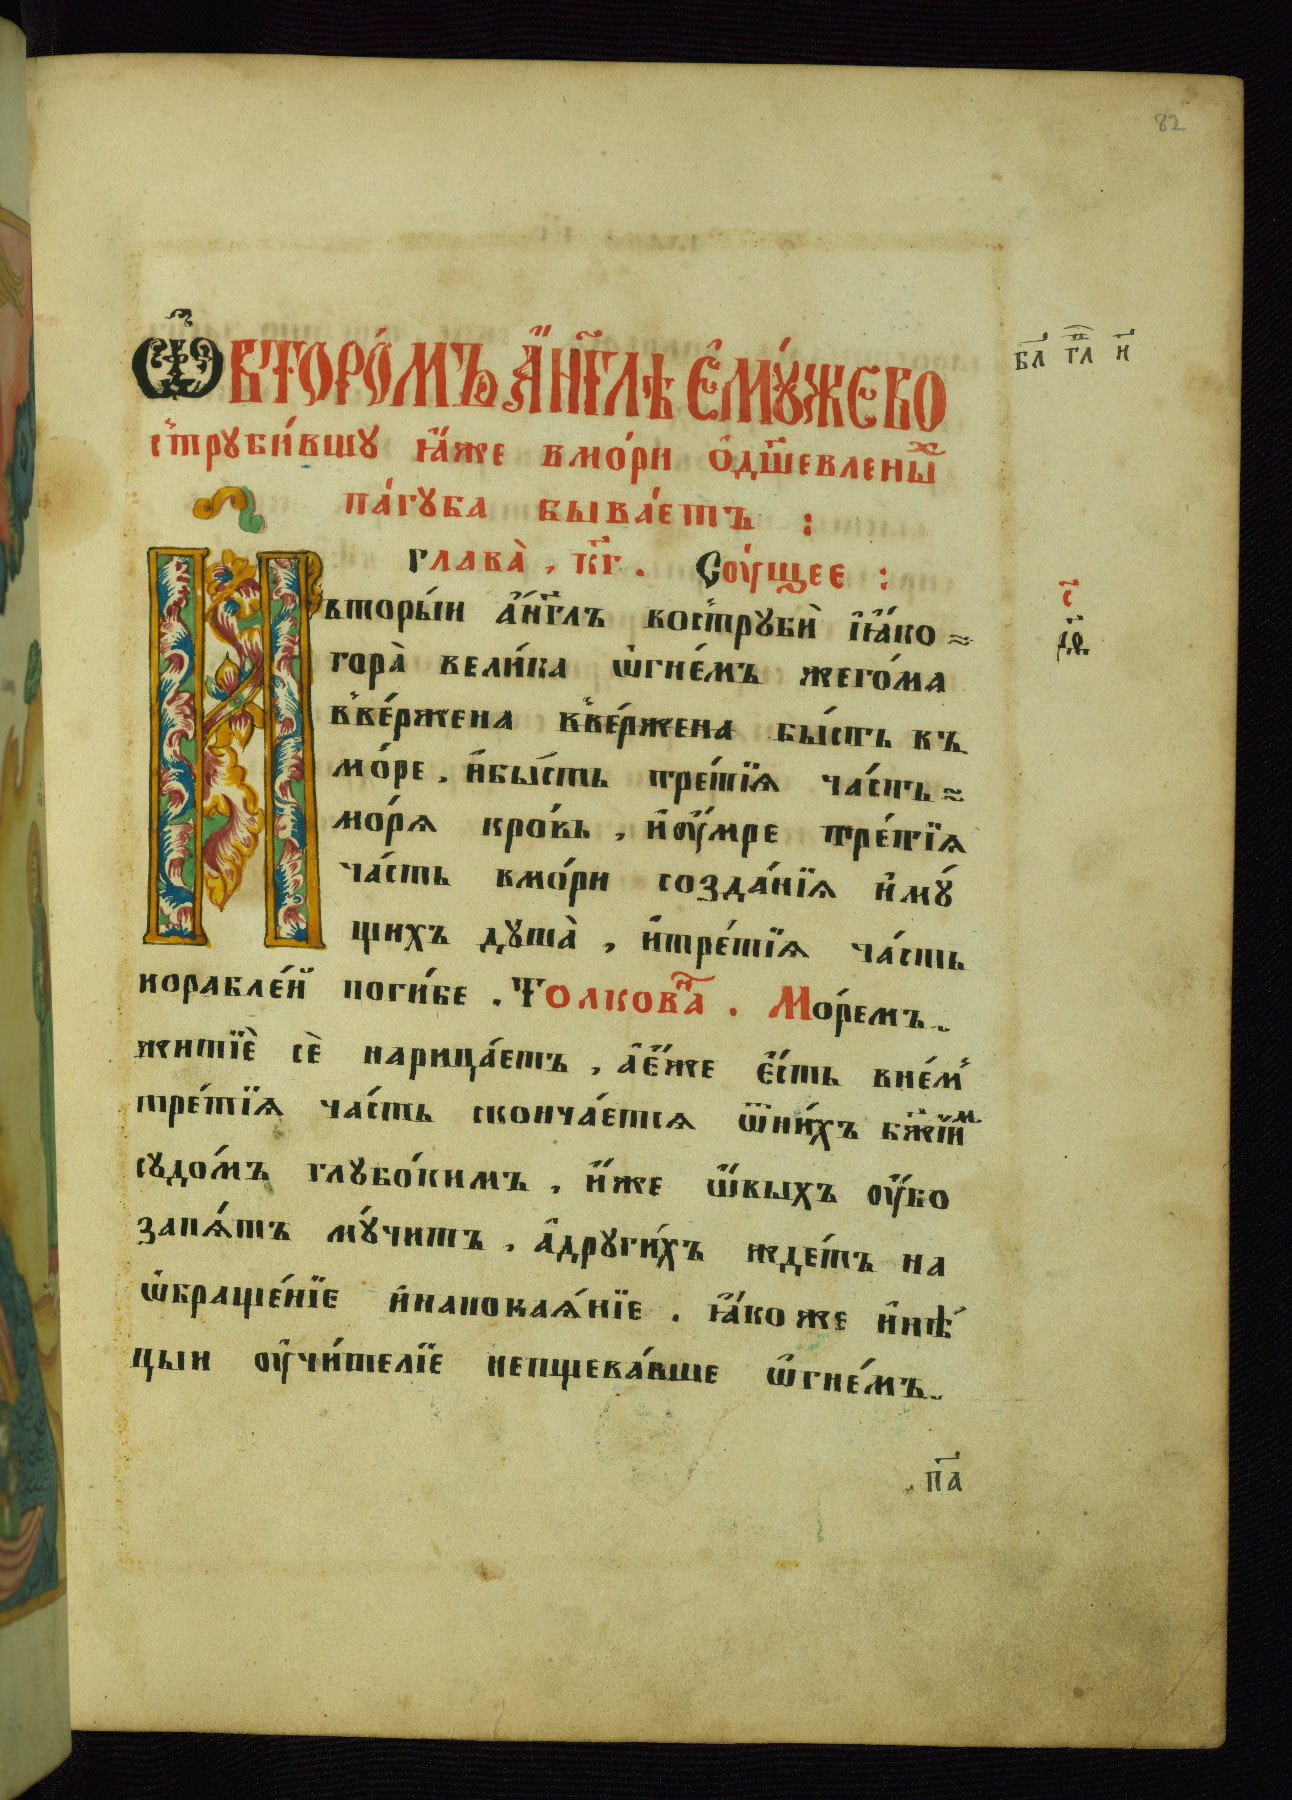 82
Ѽ второ́мъ а҆́нг҃лѣ є҆му́же во
стрꙋби́вшꙋ ꙗ҆́же в мо́ри ѻ҆дш҃евлены́х
па́гꙋба быва́етъ :
глава̀, к҃г. Сꙋ́щее :
И вторы́и а҆́нг҃лъ вострꙋбѝ і҆ ꙗ҆́ко
гора̀ вели́ка ѻ҆гне́мъ жего́ма
вве́ржена вве́ржена бы́сть въ
мо́ре, и҆ бы́сть тре́тїѧ ча́сть
мо́рѧ кро́вь, и҆ ᲂу҆́мре тре́тїѧ
ча́сть в мо́ри созда́нїѧ и҆мꙋ́
щихъ дꙋша̀, и҆ тре́тїѧ ча́сть
корабле́й поги́бе. Толкова́н. Мо́ремъ
житїѐ сѐ нарица́етъ, а҆ є҆́же є҆́сть в не́м
тре́тїѧ ча́сть сконча́етсѧ ѿ ни́хъ бж҃їи́м
сꙋдо́мъ глꙋбо́кимъ, и҆́же ѡ҆́выхъ ᲂу҆́бо
запѧ́тъ мꙋ́читъ, а҆ дрꙋги́хъ жде́тъ на
ѡ҆браще́нїе и҆ на покаѧ́нїе. ꙗ҆́коже и҆ нѣ́
цыи ᲂу҆чи́телїе непщева́вше ѻ҆гне́мъ
бл҃ гл҃ и҃
с҃
д҃в
п҃а